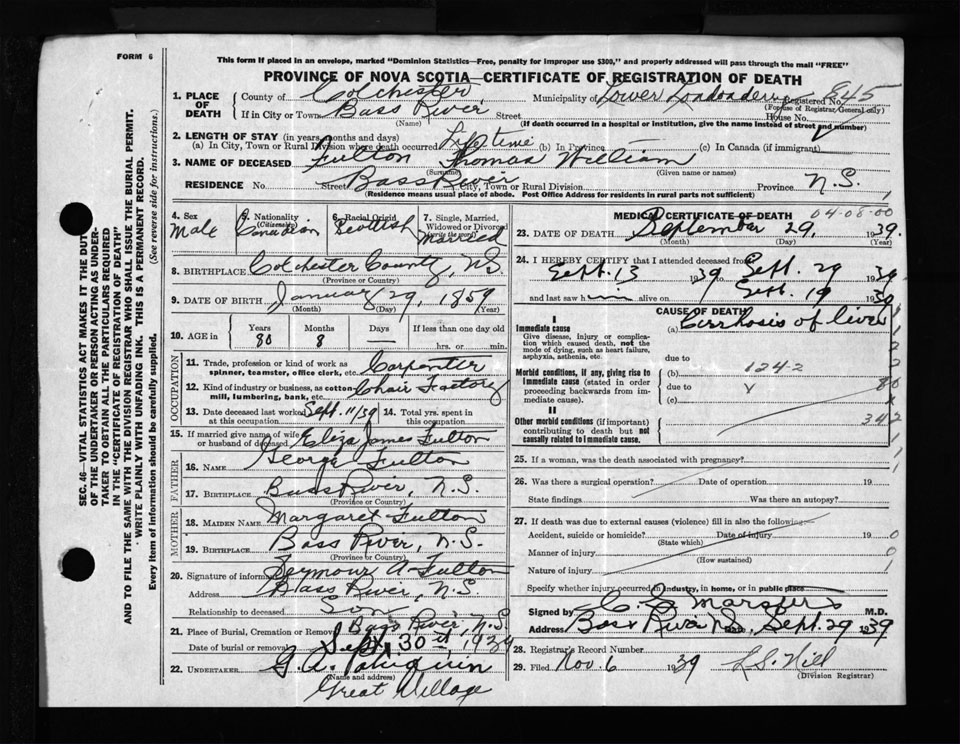 FORM 6
This form if placed in an envelope, marked "Dominion Statistics—Free, penalty for improper use $300," and properly addressed will pass through the mail "FREE"
PROVINCE OF NOVA SCOTIA—CERTIFICATE OF REGISTRATION OF DEATH
SEC. 46—VITAL STATISTICS ACT MAKES IT THE DUTY
OF THE UNDERTAKER OR PERSON ACTING AS UNDER-
TAKER TO OBTAIN ALL THE PARTICULARS REQUIRED
IN THE "CERTIFICATE OF REGISTRATION OF DEATH"
AND TO FILE THE SAME WITH THE DIVISION REGISTRAR WHO SHALL ISSUE THE BURIAL PERMIT.
WRITE PLAINLY WITH UNFADING INK. THIS IS A PERMANENT RECORD.
Every item of information should be carefully supplied. (See reverse side for instructions.)
1. PLACE OF DEATH County of Colchester Municipality of Lower Londonderry Registered No. 845
(For use of Registrar General only)
If in City or Town Bass River Street House No.
(Name) (If death occurred in a hospital or institution, give the name instead of street and number)
2. LENGTH OF STAY (in years, months and days)
(a) In City, Town or Rural Division where death occurred Lifetime (b) In Province (c) In Canada (if immigrant)
3. NAME OF DECEASED Fulton Thomas William
(Surname) (Given name or names)
RESIDENCE No. Street Bass River City, Town or Rural Division Province N.S.
(Residence means usual place of abode. Post Office Address for residents in rural parts not sufficient)
4. Sex Male
5. Nationality (Citizenship) Canadian
6. Racial Origin Scottish
7. Single, Married, Widowed or Divorced (write the word) Married
8. BIRTHPLACE Colchester County, N.S.
(Province or Country)
9. DATE OF BIRTH January 29, 1859
(Month) (Day) (Year)
10. AGE in Years 80 Months 8 Days — If less than one day old hrs. or min.
OCCUPATION
11. Trade, profession or kind of work as spinner, teamster, office clerk, etc. Carpenter
12. Kind of industry or business, as cotton mill, lumbering, bank, etc. Chair Factory
13. Date deceased last worked at this occupation Sept. 11/39 14. Total yrs. spent in this occupation
15. If married give name of wife or husband of deceased Eliza James Fulton
FATHER
16. NAME George Fulton
17. BIRTHPLACE Bass River, N.S.
(Province or Country)
MOTHER
18. MAIDEN NAME Margaret Fulton
19. BIRTHPLACE Bass River, N.S.
(Province or Country)
20. Signature of informant Seymour A. Fulton
Address Bass River, N.S.
Relationship to deceased Son
21. Place of Burial, Cremation or Removal Bass River, N.S.
Date of burial or removal Sept. 30th, 1939
22. UNDERTAKER G.A.
(Name and address)
Great Village
MEDICAL CERTIFICATE OF DEATH
04-08-00
23. DATE OF DEATH September 29, 1939.
(Month) (Day) (Year)
24. I HEREBY CERTIFY that I attended deceased from
Sept. 13 1939 to Sept. 29 1939
and last saw him alive on Sept. 19 1930
CAUSE OF DEATH
I
Immediate cause
Give disease, injury or complication which caused death, not the mode of dying, such as heart failure, asphyxia, asthenia, etc.
(a) Cirrhosis of liver
due to
Morbid conditions, if any, giving rise to Immediate cause (stated in order proceeding backwards from immediate cause).
(b) 124-2
due to Y 80
(c)
II
Other morbid conditions (if important) contributing to death but not causally related to Immediate cause.
342
25. If a woman, was the death associated with pregnancy?
26. Was there a surgical operation? Date of operation 19
State findings Was there an autopsy?
27. If death was due to external causes (violence) fill in also the following:—
Accident, suicide or homicide? Date of injury 19
(State which)
Manner of injury
(How sustained)
Nature of injury
Specify whether injury occurred in industry, in home, or in public place
Signed by M.D.
Address Bass River N.S. Date Sept. 29 1939
28. Registrar's Record Number
29. Filed Nov. 6 1939 L.S. Hill
(Division Registrar)